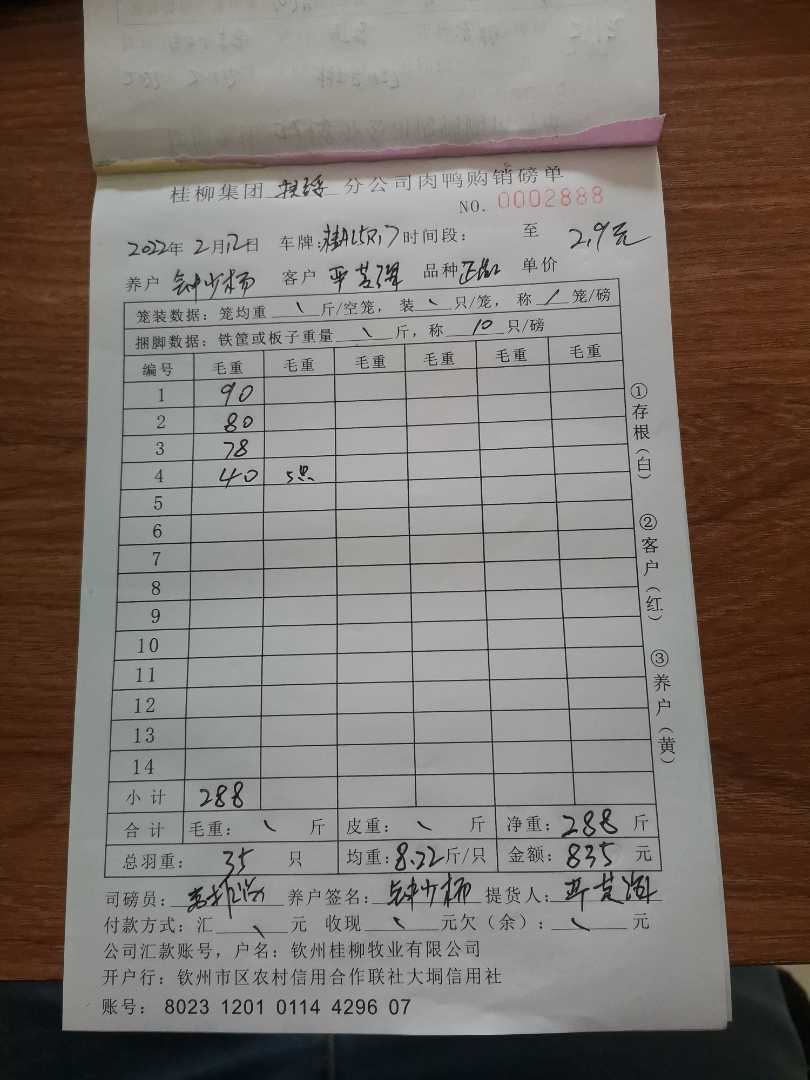 桂柳集团 分公司肉鸭购销磅单
NO. 0002888
2022年 2月12日 车牌: 时间段: 至 2.9元
养户 钟少杨 客户 品种 单价
笼装数据: 笼均重 \ 斤/空笼, 装 \ 只/笼, 称 / 笼/磅
捆脚数据: 铁筐或板子重量 \ 斤, 称 10 只/磅
编号 毛重 毛重 毛重 毛重 毛重 毛重
1 90
2 80
3 78
4 40 5只
5
6
7
8
9
10
11
12
13
14
小计 288
合计 毛重: \ 斤 皮重: \ 斤 净重: 288 斤
总羽重: 35 只 均重: 8.22斤/只 金额: 835 元
司磅员: 养户签名: 钟少杨 提货人:
付款方式: 汇 \ 元 收现 \ 元欠(余): \ 元
公司汇款账号, 户名: 钦州桂柳牧业有限公司
开户行: 钦州市区农村信用合作联社大垌信用社
账号: 8023 1201 0114 4296 07
①存根(白)
②客户(红)
③养户(黄)